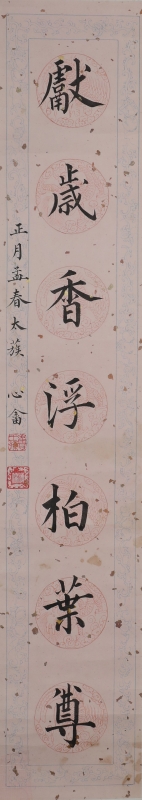 獻歲香浮柏葉尊
正月孟春太蔟 心畬